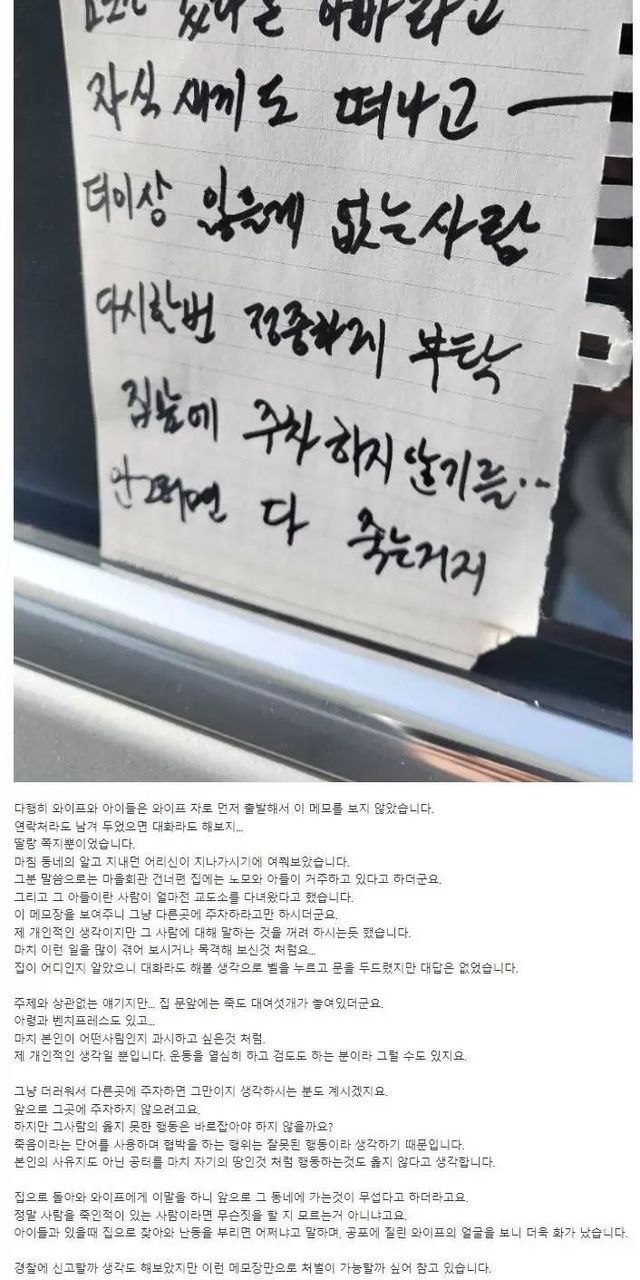 자식 새끼도 떠나고 —
더이상 잃을게 없는 사람
다시한번 정중하게 부탁
집앞에 주차 하지 않기를..
안그러면 다 죽는거지
다행히 와이프와 아이들은 와이프 차로 먼저 출발해서 이 메모를 보지 않았습니다.
연락처라도 남겨 두었으면 대화라도 해보지...
딸랑 쪽지뿐이었습니다.
마침 동네의 알고 지내던 어리신이 지나가시기에 여쭤보았습니다.
그분 말씀으로는 마을회관 건너편 집에는 노모와 아들이 거주하고 있다고 하더군요.
그리고 그 아들이란 사람이 얼마전 교도소를 다녀왔다고 했습니다.
이 메모장을 보여주니 그냥 다른곳에 주차하라고만 하시더군요.
제 개인적인 생각이지만 그 사람에 대해 말하는 것을 꺼려 하시는듯 했습니다.
마치 이런 일을 많이 겪어 보시거나 목격해 보신것 처럼요...
집이 어디인지 알았으니 대화라도 해볼 생각으로 벨을 누르고 문을 두드렸지만 대답은 없었습니다.
주제와 상관없는 얘기지만... 집 문앞에는 죽도 대여섯개가 놓여있더군요.
아령과 벤치프레스도 있고...
마치 본인이 어떤사람인지 과시하고 싶은것 처럼.
제 개인적인 생각일 뿐입니다. 운동을 열심히 하고 검도도 하는 분이라 그럴 수도 있지요.
그냥 더러워서 다른곳에 주차하면 그만이지 생각하시는 분도 계시겠지요.
앞으로 그곳에 주차하지 않으려고요.
하지만 그사람의 옳지 못한 행동은 바로잡아야 하지 않을까요?
죽음이라는 단어를 사용하며 협박을 하는 행위는 잘못된 행동이라 생각하기 때문입니다.
본인의 사유지도 아닌 공터를 마치 자기의 땅인것 처럼 행동하는것도 옳지 않다고 생각합니다.
집으로 돌아와 와이프에게 이말을 하니 앞으로 그 동네에 가는것이 무섭다고 하더라고요.
정말 사람을 죽인적이 있는 사람이라면 무슨짓을 할 지 모르는거 아니냐고요.
아이들과 있을때 집으로 찾아와 난동을 부리면 어쩌냐고 말하며, 공포에 질린 와이프의 얼굴을 보니 더욱 화가 났습니다.
경찰에 신고할까 생각도 해보았지만 이런 메모장만으로 처벌이 가능할까 싶어 참고 있습니다.